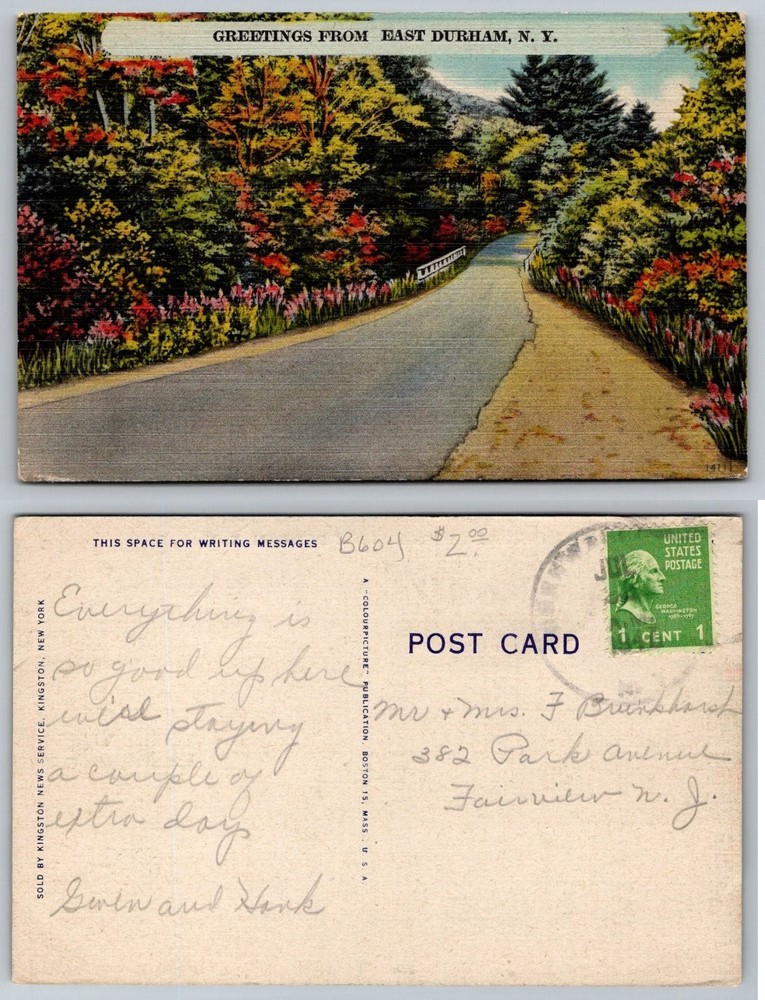 GREETINGS FROM EAST DURHAM, N. Y.
14111
THIS SPACE FOR WRITING MESSAGES
B604 $2.00
Everything is
so good up here
we're staying
a couple of
extra days
Gwen and Hank
SOLD BY KINGSTON NEWS SERVICE, KINGSTON, NEW YORK
A "COLOURPICTURE" PUBLICATION, BOSTON 15, MASS. U S A
POST CARD
UNITED
STATES
POSTAGE
GEORGE
WASHINGTON
1789-1797
1 CENT 1
Mr + Mrs. F
382 Park Avenue
Fairview N. J.